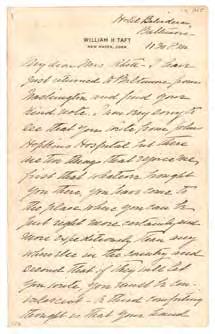 Hotel Belvedere,
Baltimore
WILLIAM H TAFT
NEW HAVEN, CONN.
My dear Mrs White: I have
just returned to Baltimore from
Washington and find your
kind note. I am very sorry to
see that you write from Johns
Hopkins Hospital but there
are two things that rejoice me,
first that whatever brought
you there, you have come to
the place where you can be
put right more certainly and
more expeditiously than any
where else in the country and
second that if they will let
you write, you must be con-
valescent. A third comforting
thought is that your hand